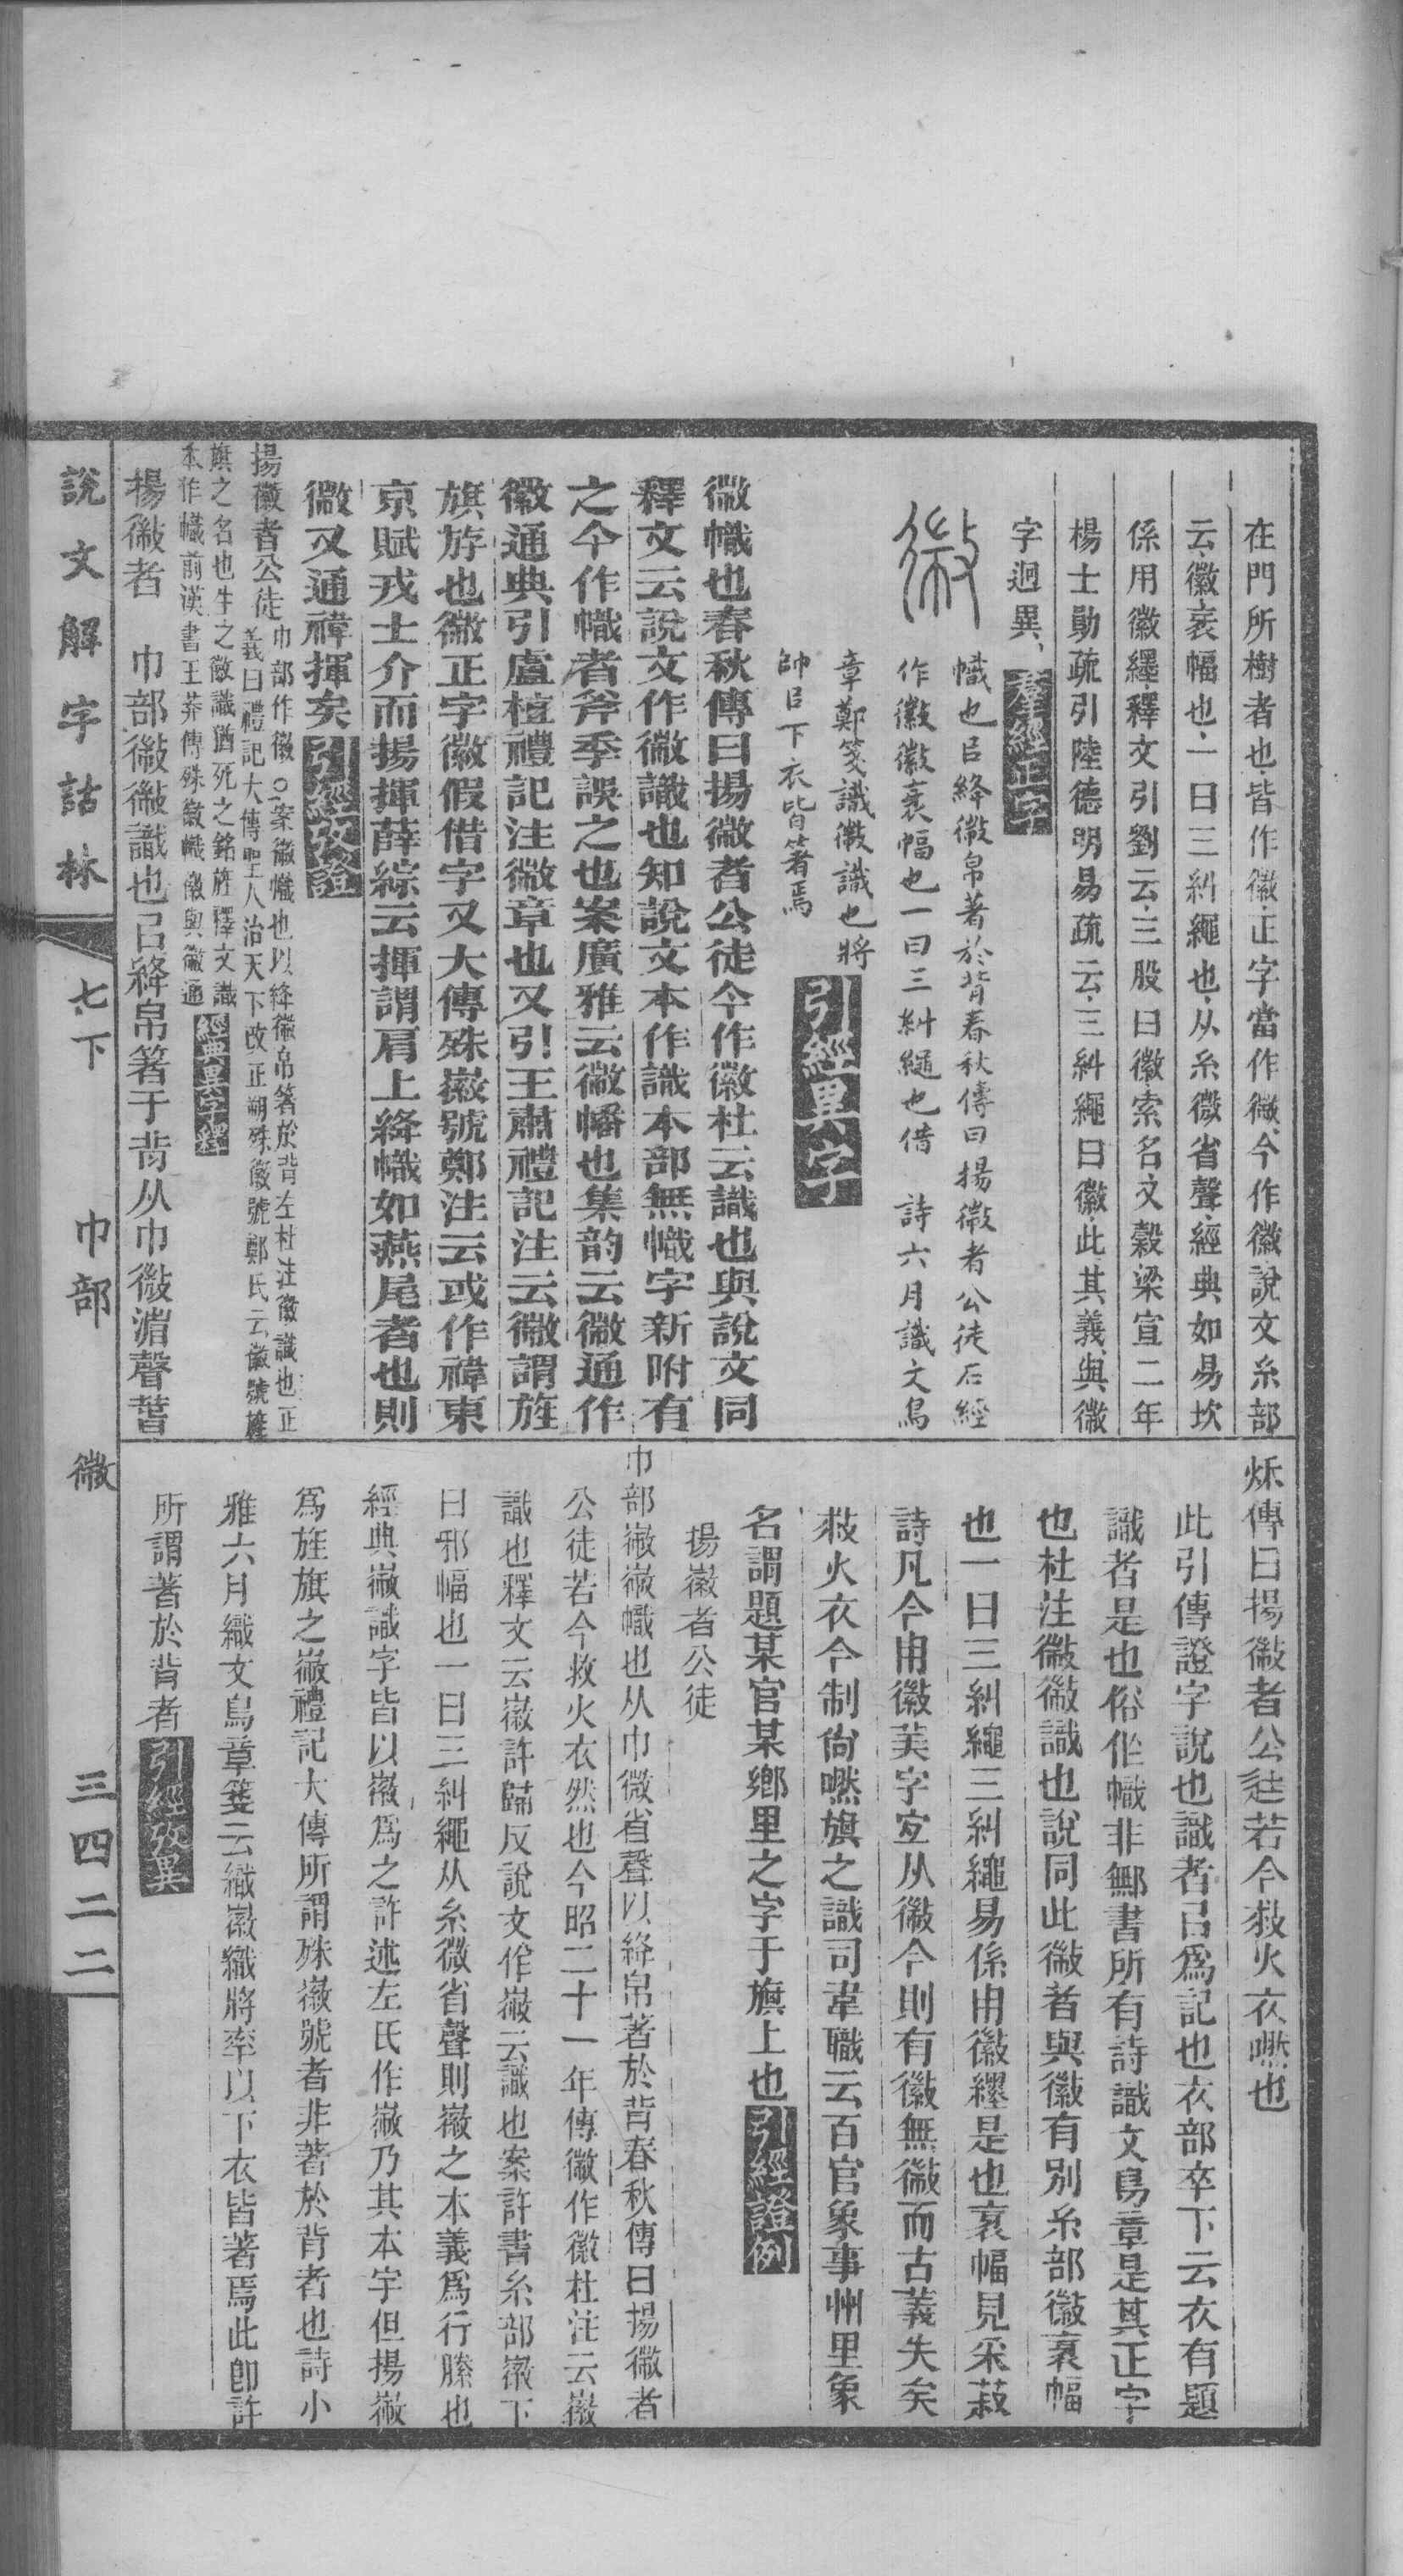 在門所樹者也皆作徽正字當作微今作徽說文糸部
云徽衺幅也一曰三糾繩也从糸微省聲經典如易坎
係用徽纆釋文引劉云三股曰徽索名文穀梁宣二年
楊士勛疏引陸德明易疏云三糾繩曰徽此其義與微
字迥異羣經正字
幟也㠯絳徽帛著於背春秋傳曰揚徽者公徒石經
作徽徽衺幅也一曰三糾繩也借 詩六月識文鳥
章鄭箋識徽識也將
帥㠯下衣皆著焉
引經異字
微幟也春秋傳曰揚微者公徒今作徽杜云識也與說文同
釋文云說文作微識也知說文本作識本部無幟字新附有
之今作幟者斧季誤之也案廣雅云微幡也集韵云微通作
徽通典引盧植禮記注微章也又引王肅禮記注云微謂旌
旗斿也微正字徽假借字又大傳殊徽號鄭注云或作褘東
京賦戎士介而揚揮薛綜云揮謂肩上絳幟如燕尾者也則
微又通褘揮矣引經攷證
揚徽者公徒 巾部作徽○案徽幟也以絳徽帛箸於背左杜注徽識也正
義曰禮記大傳聖人治天下改正朔殊徽號鄭氏云徽號旌
旗之名也生之徽識猶死之銘旌釋文識
本作幟前漢書王莽傳殊徽幟徽與徽通
經典異字釋
楊微者 巾部微微識也㠯絳帛箸于背从巾微渻聲
秌傳曰揚微者公徒若今救火衣嘫也
此引傳證字說也識者㠯爲記也衣部卒下云衣有題
識者是也俗作幟非鄦書所有詩識文鳥章是其正字
也杜注微微識也說同此微者與徽有別糸部徽衺幅
也一曰三糾繩三糾繩易係用徽纆是也衺幅見采菽
詩凡今用徽美字宐从微今則有徽無微而古義失矣
救火衣今制尙嘫旗之識司韋職云百官象事州里象
名謂題某官某鄉里之字于旗上也引經證例
揚徽者公徒
巾部微微幟也从巾微省聲以絳帛著於背春秋傳曰揚微者
公徒若今救火衣然也今昭二十一年傳微作徽杜注云徽
識也釋文云徽許歸反說文作微云識也案許書糸部徽下
曰邪幅也一曰三糾繩从糸微省聲則徽之本義爲行縢也
經典微識字皆以徽爲之許述左氏作微乃其本字但揚微
爲旌旗之微禮記大傳所謂殊徽號者非著於背者也詩小
雅六月織文鳥章箋云織徽織將率以下衣皆著焉此卽許
所謂著於背者引經攷異
說文解字詁林 七下 巾部 微 三四二二